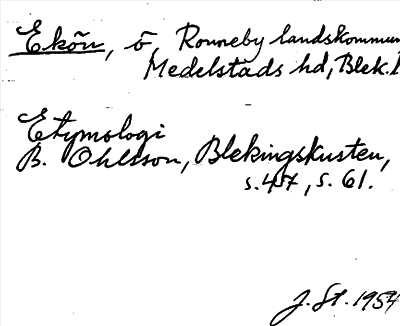 Ekön, ö, Ronneby landskommun
Medelstads hd, Blek.l
Etymologi
B. Ohlsson, Blekingskusten,
s.47, s. 61.
J. St. 1954